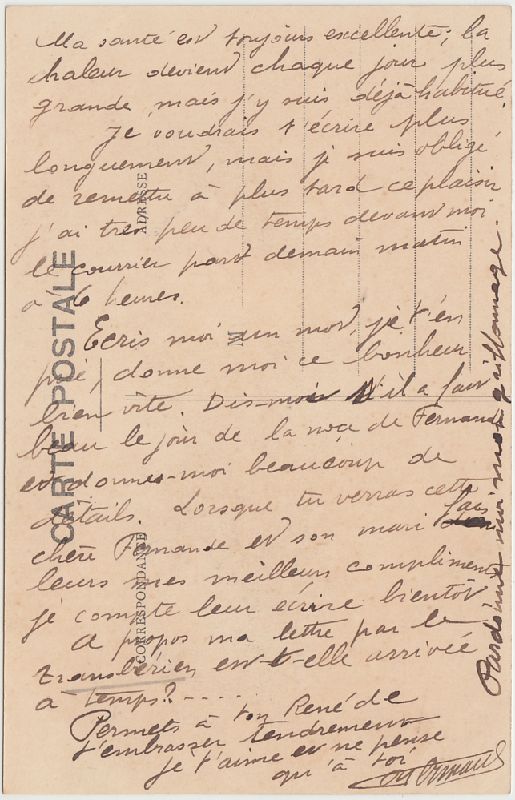 Ma santé est toujours excellente; la
chaleur devient chaque jour plus
grande, mais j'y suis déjà habitué.
Je voudrais t'écrire plus
longuement, mais je suis obligé
de remettre à plus tard ce plaisir
j'ai très peu de temps devant moi
le courrier part demain matin
à 6 heures.
Ecris moi un mot, je t'en
prie, donne moi ce bonheur
bien vite. Dis-moi s'il a fait
beau le jour de la noce de Fernande
et donnes-moi beaucoup de
détails. Lorsque tu verras cette
chère Fernande et son mari fais
leurs mes meilleurs compliments
je compte leur écrire bientôt
A propos ma lettre par le
transibérien est-t-elle arrivée
à temps?-----
Permets à ton René de
t'embrasser tendrement
je t'aime et ne pense
qu'à toi
Pardonne moi mon griffonnage.
CARTE POSTALE
CORRESPONDANCE
ADRESSE
M